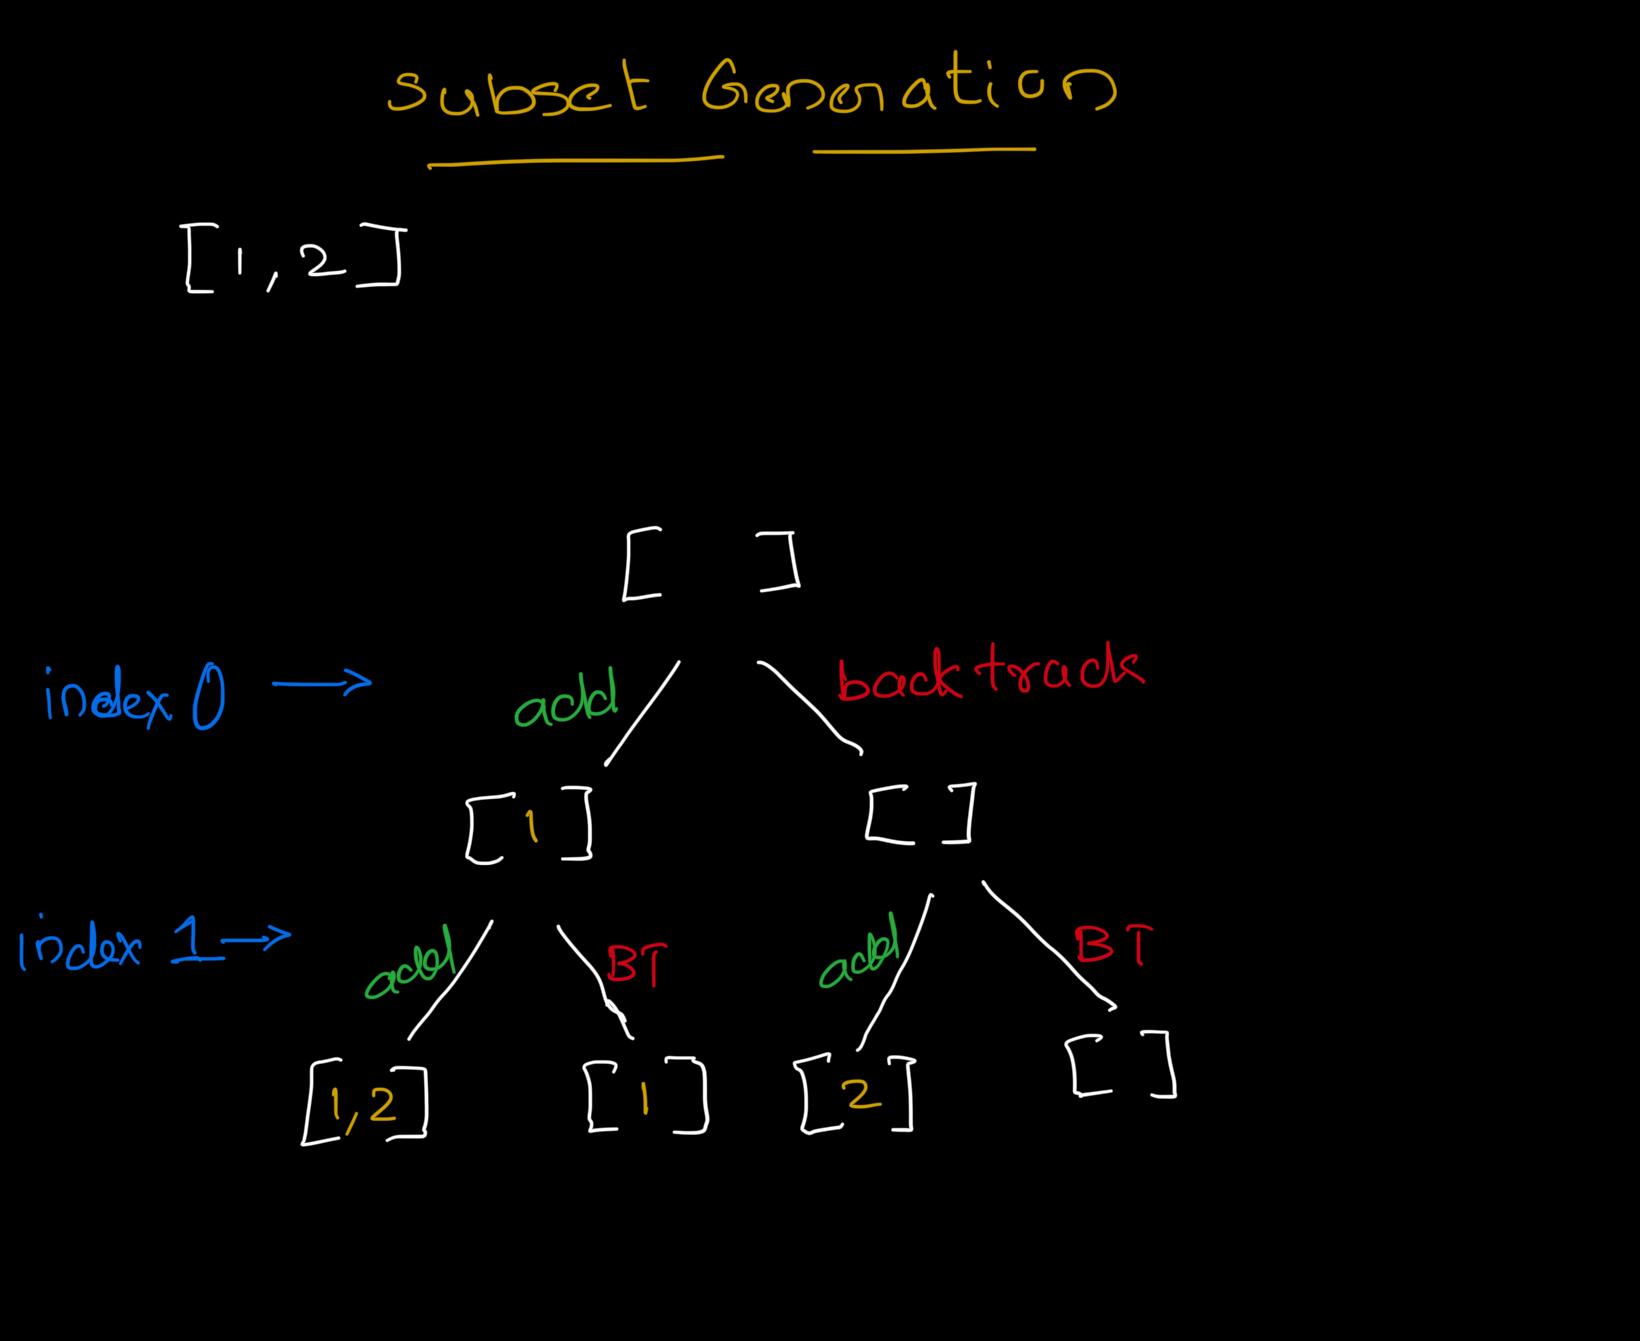 Subset Generation
[1,2]
[ ]
index 0 → add backtrack
[1] [ ]
index 1 → add BT add BT
[1,2] [1] [2] [ ]